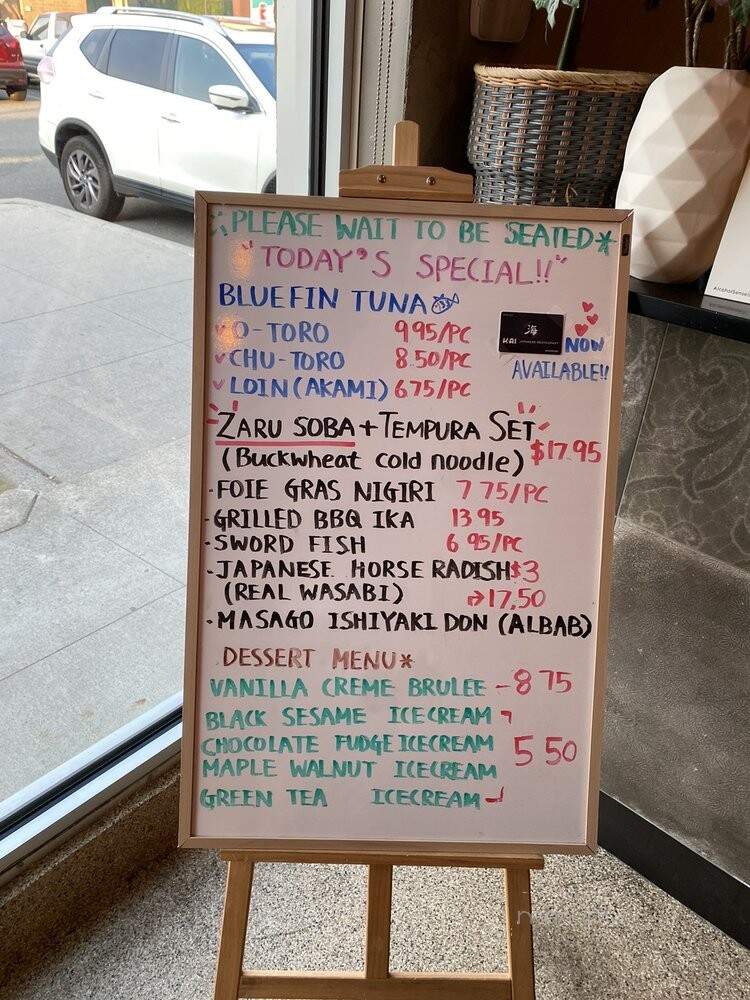 *PLEASE WAIT TO BE SEATED*
"TODAY'S SPECIAL!!"
BLUEFIN TUNA
O-TORO 9 95/PC
CHU-TORO 8.50/PC
LOIN (AKAMI) 6 75/PC
海
KAI JAPANESE RESTAURANT
NOW
AVAILABLE!!
ZARU SOBA + TEMPURA SET
(Buckwheat cold noodle) $17.95
·FOIE GRAS NIGIRI 7 75/PC
·GRILLED BBQ IKA 13 95
·SWORD FISH 6 95/PC
·JAPANESE HORSE RADISH $3
(REAL WASABI) →17,50
·MASAGO ISHIYAKI DON (ALBAB)
DESSERT MENU*
VANILLA CREME BRULEE - 8 75
BLACK SESAME ICECREAM
CHOCOLATE FUDGE ICECREAM 5 50
MAPLE WALNUT ICECREAM
GREEN TEA ICECREAM